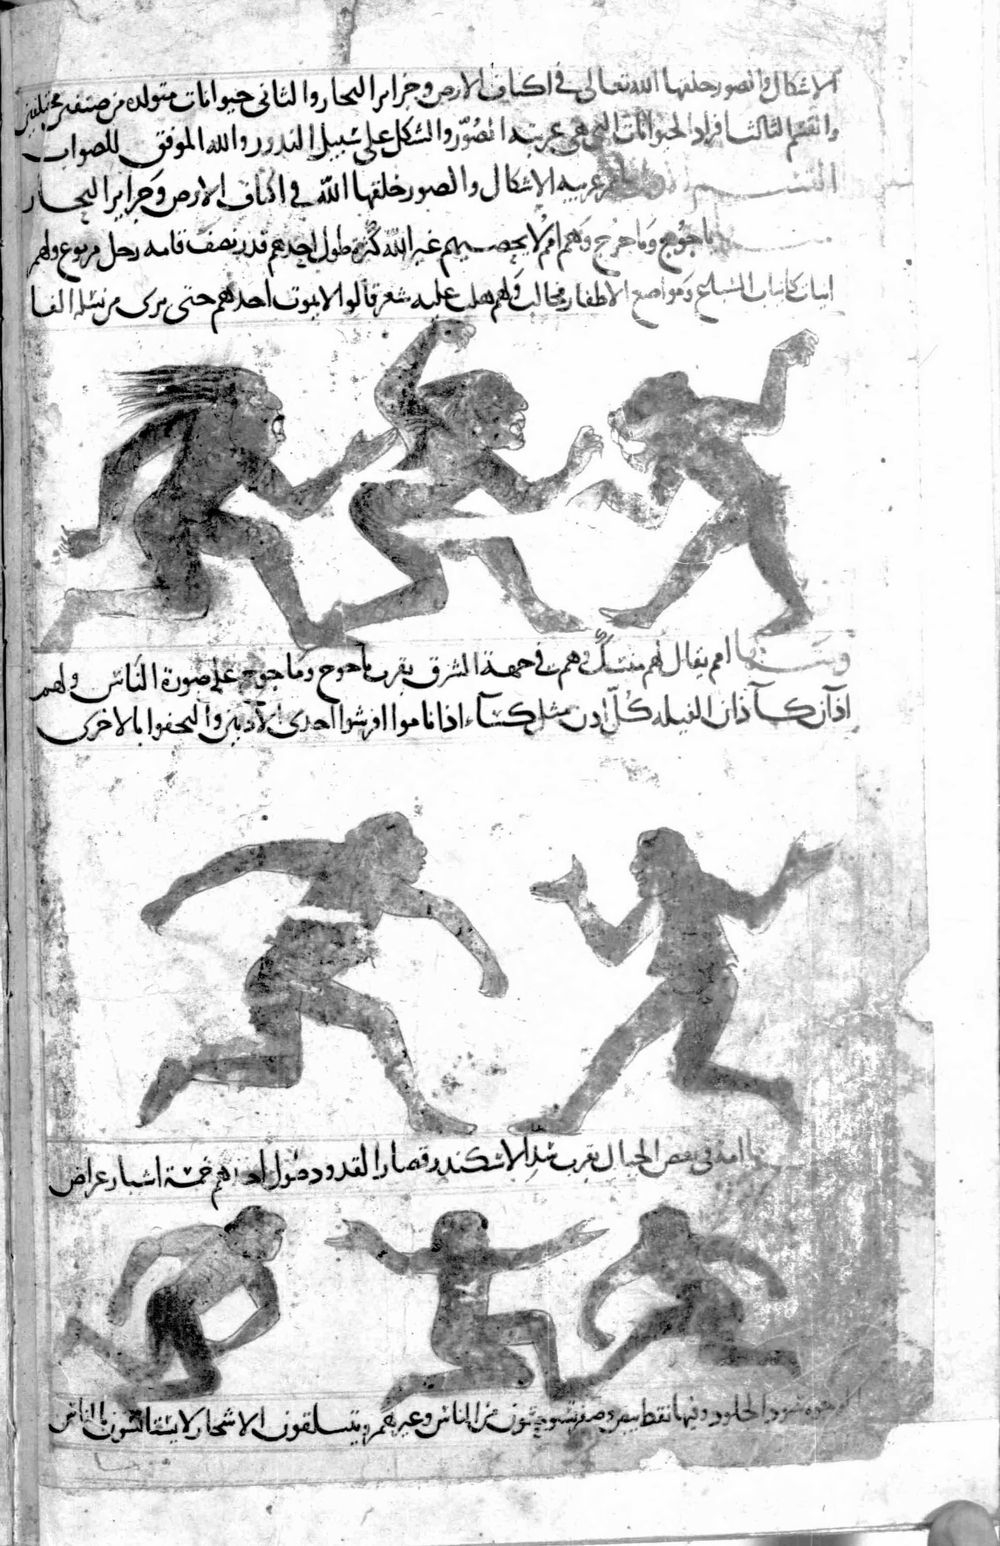 الاشكال والصور خلقها الله تعالى فى اكناف الارض وجزاير البحار والثانى حيوانات متولده من صنفين مختلفين
والقسم الثالث افراد الحيوانات التى هى غريبه الصور والشكل على سبيل الندور والله الموفق للصواب
القسم غريبه الاشكال والصور خلقها الله فى اكناف الارض وجزاير البحار
ياجوج وماجوج وهم امم لا يحصيهم غير الله كثرة طول احدهم قدر نصف قامه رجل مربوع ولهم
انياب كانياب السباع ومواضع الاظفار مخالب ولهم هلب عليه شعر قالوا لا يموت احدهم حتى يرى من نسله الفا
ومنها امم يقال لهم منسك وهم فى جهة الشرق بقرب ياجوج وماجوج على صورة الناس ولهم
اذان كآذان الفيله كل اذن مثل كساء اذا ناموا افرشوا احدى الاذنين والتحفوا بالاخرى
امة فى بعض الجبال بقرب سد الاسكندر قصار القدود طول احدهم خمسة اشبار عراض
الوجوه سود الجلود وفيها نقط بيض وصفر من الناس وغيرهم ويتسلقون الاشجار لا يستانسون بالناس